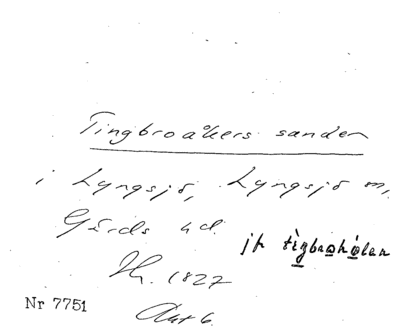 Tingbroåkers sanden
i Lyngsjö, Lyngsjö m.
Gärds hd.
jfr tigbrohålan
1827
Akt 6.
Nr 7751